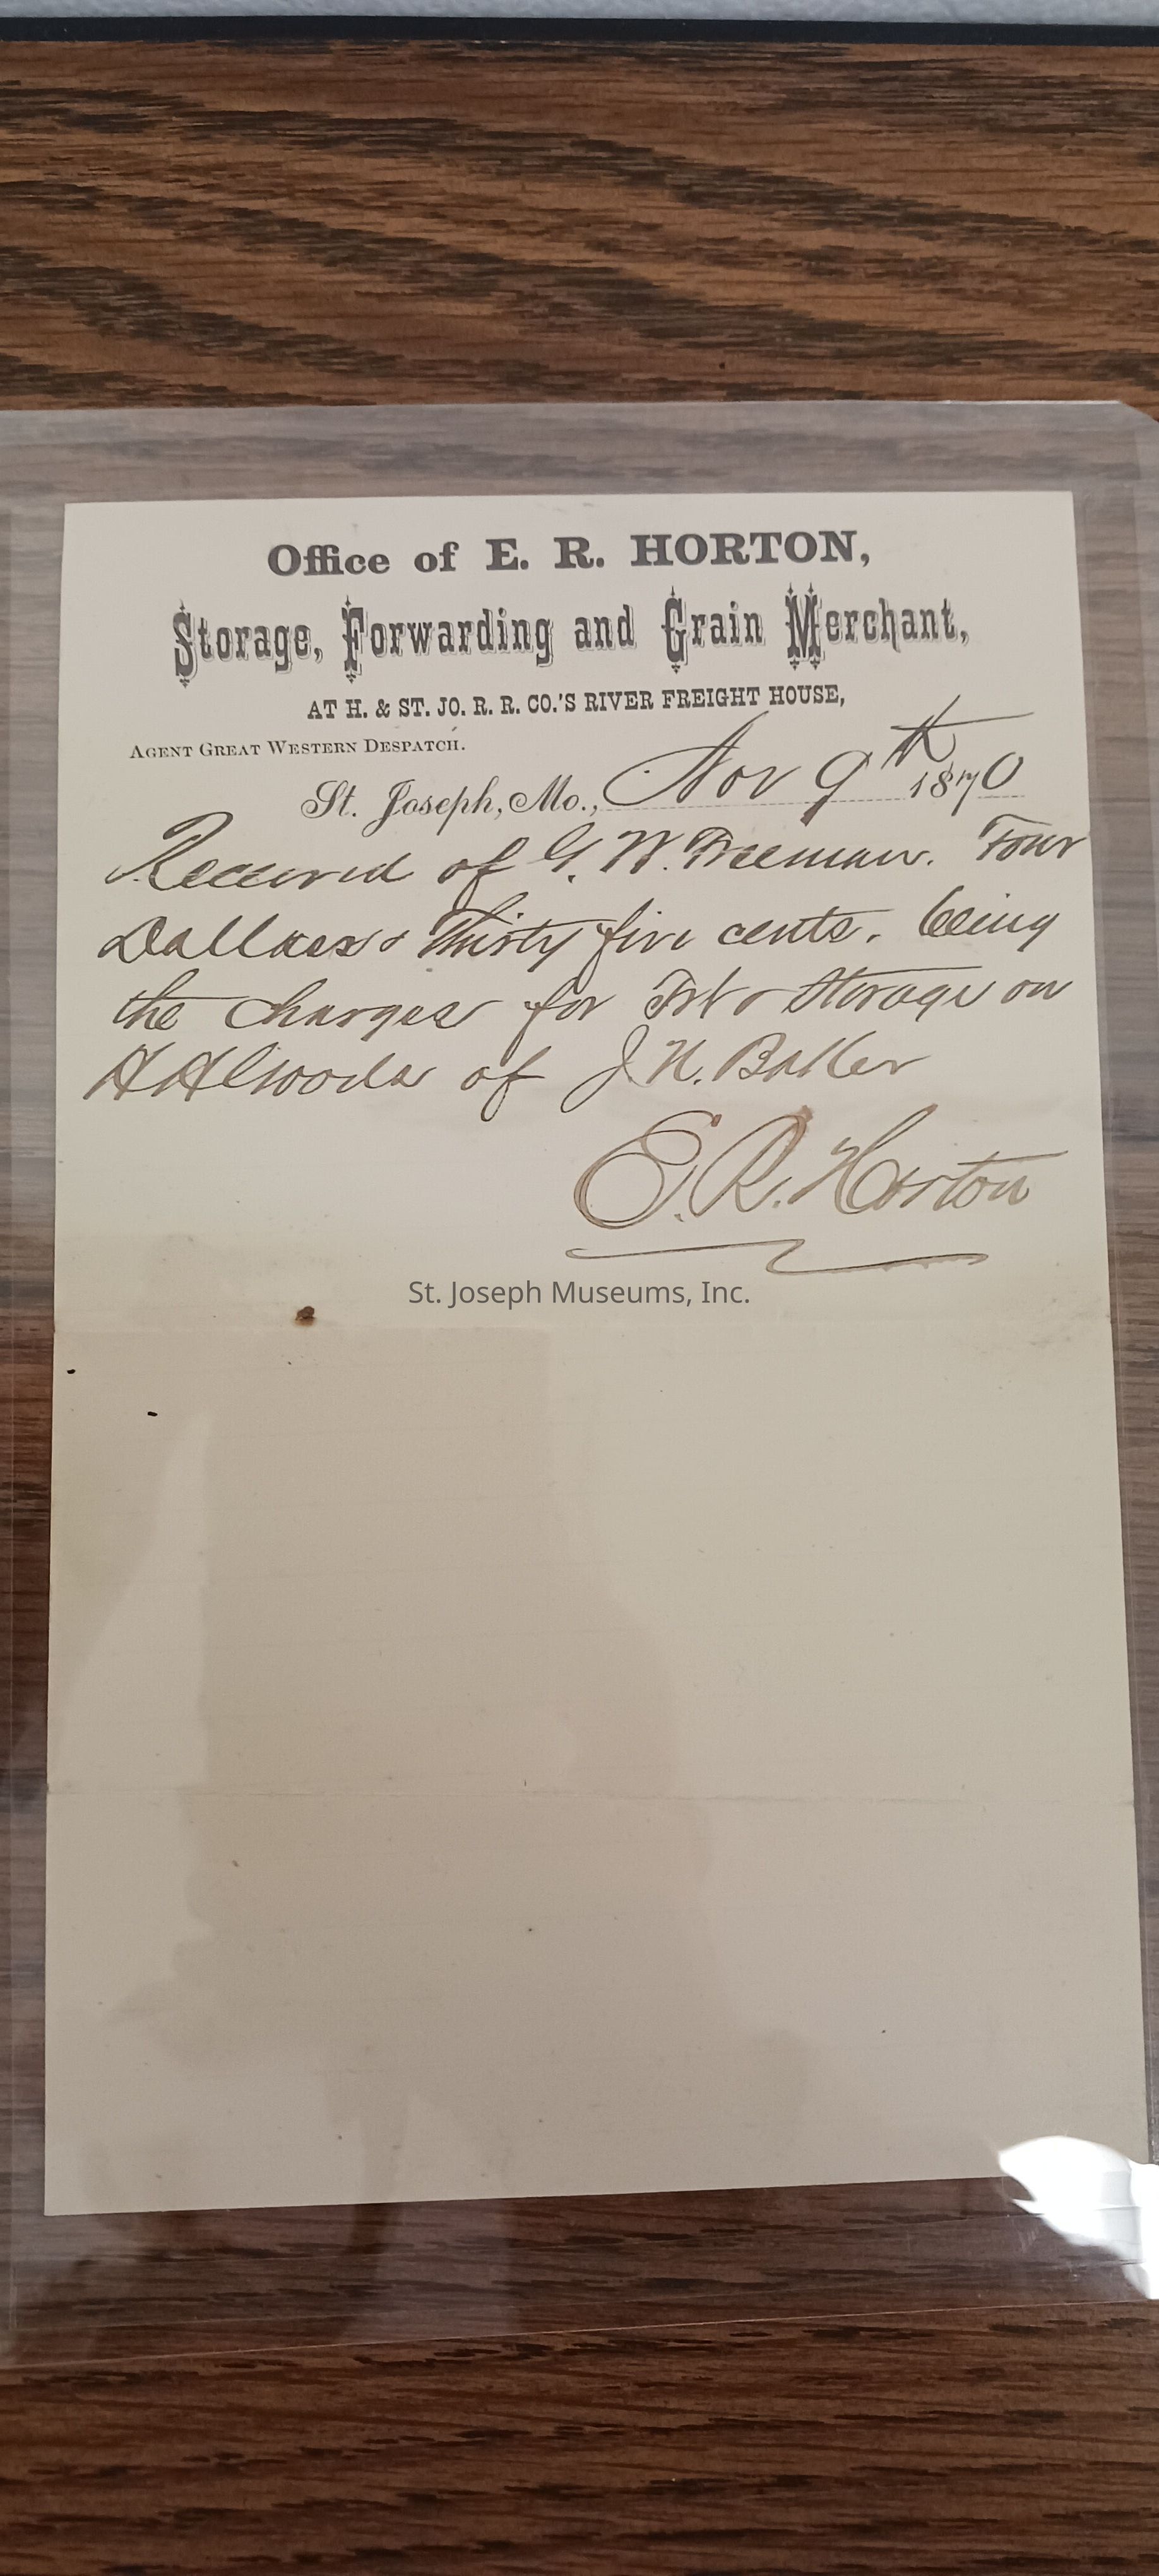 Office of E. R. HORTON,
Storage, Forwarding and Grain Merchant,
AT H. & ST. JO. R. R. CO.'S RIVER FREIGHT HOUSE,
AGENT GREAT WESTERN DESPATCH.
St. Joseph, Mo., Nov 9th 1870
Received of G. W. Freeman. Four
Dollars & Thirty five cents. being
the charges for Frt & Storage on
of J. N. Baller
E. R. Horton
St. Joseph Museums, Inc.